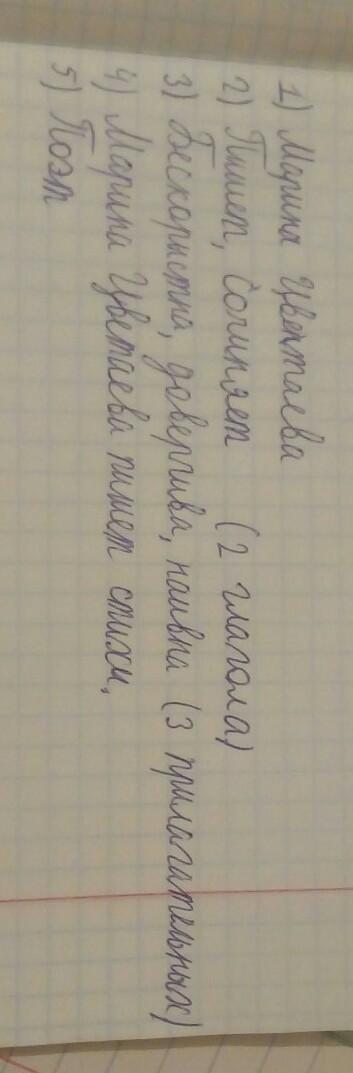 1) Марина Цветаева
2) Пишет, сочиняет (2 глагола)
3) Бескорыстна, доверчива, наивна (3 прилагательных)
4) Марина Цветаева пишет стихи.
5) Поэт